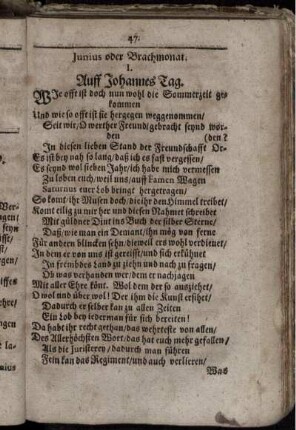 47.
Junius oder Brachmonat.
I.
Auff Johannes Tag.
WJe offt ist doch nun wohl die Sommerzeit ge-
kommen
Und wie so offt ist sie hergegen weggenommen/
Seit wir/ O werther Freund/ gebracht seynd wor-
den
(den?
In diesen lieben Stand der Freundschafft Or-
Es ist bey nah so lang/ daß ich es fast vergessen/
Es seynd wol sieben Jahr/ ich habe mich vermessen
Zu loben euch/ weil uns/ auff kamen Wagen
Saturnus euer Lob bringt hergetragen/
So komt/ ihr Musen doch/ die ihr den Himmel treibet/
Komt eilig zu mir her und diesen Nahmen schreibet
Mit güldner Dint ins Buch der silber Sterne/
Daß/ wie man ein Demant/ ihn mög von ferne
Für andern blincken sehn/ dieweil ers wohl verdienet/
In dem er von uns ist gereisst/ und sich erkühnet
In frembdes Land zu ziehn und nach zu fragen/
Ob was verhanden wer/ dem er nachjagen
Mit aller Ehre könt. Wol dem der so ausziehet/
O wol und über wol! Der ihm die Kunst ersihet/
Dadurch er selber kan zu allen Zeiten
Ein Lob bey iederman für sich bereiten!
Da habt ihr recht gethan/ das wehrteste von allen/
Des Allerhöchsten Wort/ das hat euch mehr gefallen/
Als die Juristerey/ dadurch man führen
Fein kan das Regiment/ und auch verlieren/
Was